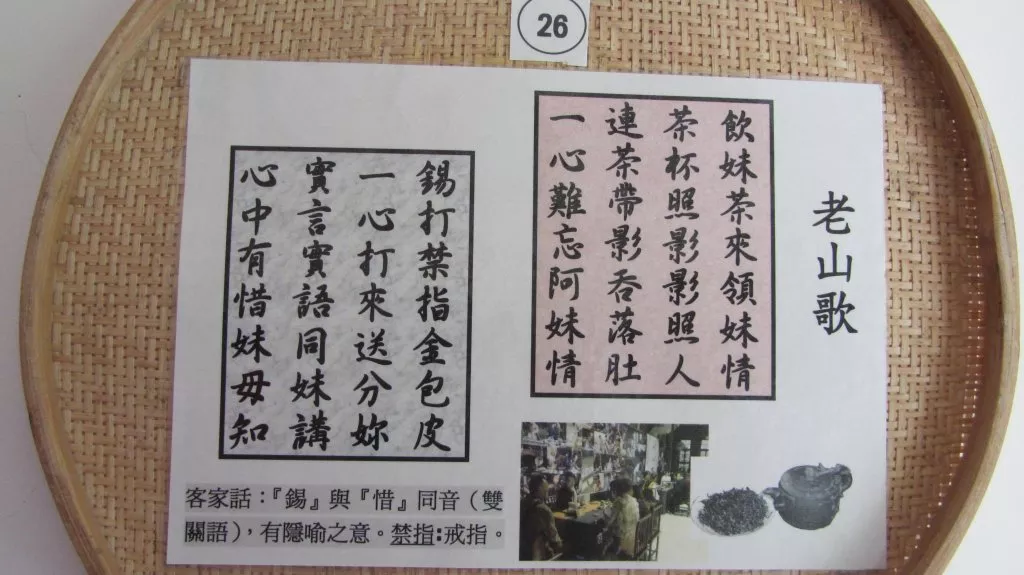 26
老山歌
飲妹茶來領妹情
茶杯照影影照人
連茶帶影吞落肚
一心難忘阿妹情
錫打禁指金包皮
一心打來送分妳
實言實語同妹講
心中有惜妹毋知
客家話：『錫』與『惜』同音（雙
關語），有隱喻之意。禁指:戒指。